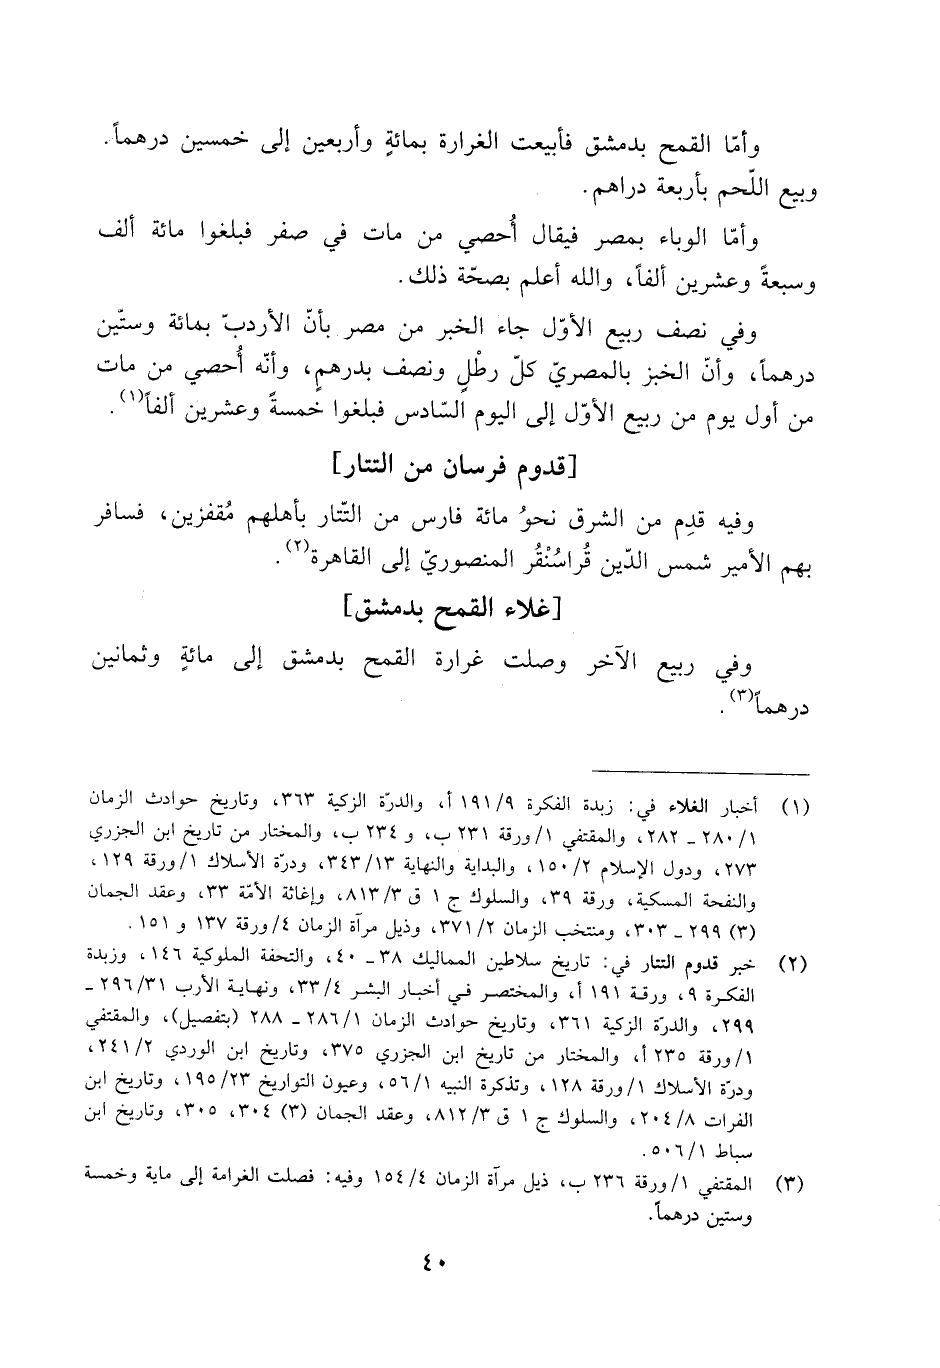 وأمّا القمح بدمشق فأبيعت الغرارة بمائةٍ وأربعين إلى خمسين درهماً.
وبيع اللّحم بأربعة دراهم.
وأمّا الوباء بمصر فيقال أُحصي من مات في صفر فبلغوا مائة ألف
وسبعةً وعشرين ألفاً، والله أعلم بصحّة ذلك.
وفي نصف ربيع الأوّل جاء الخبر من مصر بأنّ الأردبّ بمائة وستّين
درهماً، وأنّ الخبز بالمصريّ كلّ رطْلٍ ونصف بدرهمٍ، وأنّه أُحصي من مات
من أول يوم من ربيع الأوّل إلى اليوم السّادس فبلغوا خمسةً وعشرين ألفاً(١).
[قدوم فرسان من التتار]
وفيه قدِم من الشرق نحوُ مائة فارس من التّتار بأهلهم مُقفزين، فسافر
بهم الأمير شمس الدّين قُراسُنْقُر المنصوريّ إلى القاهرة(٢).
[غلاء القمح بدمشق]
وفي ربيع الآخر وصلت غرارة القمح بدمشق إلى مائةٍ وثمانين
درهماً(٣).
(١) أخبار الغلاء في: زبدة الفكرة ١٩١/٩ أ، والدرّة الزكية ٣٦٣، وتاريخ حوادث الزمان
٢٨٠/١ ـ ٢٨٢، والمقتفي ١/ورقة ٢٣١ ب، و ٢٣٤ ب، والمختار من تاريخ ابن الجزري
٢٧٣، ودول الإسلام ١٥٠/٢، والبداية والنهاية ٣٤٣/١٣، ودرّة الأسلاك ١/ورقة ١٢٩،
والنفحة المسكية، ورقة ٣٩، والسلوك ج ١ ق ٨١٣/٣، وإغاثة الأمّة ٣٣، وعقد الجمان
(٣) ٢٩٩ ـ ٣٠٣، ومنتخب الزمان ٣٧١/٢، وذيل مرآة الزمان ٤/ورقة ١٣٧ و ١٥١.
(٢) خبر قدوم التتار في: تاريخ سلاطين المماليك ٣٨ ـ ٤٠، والتحفة الملوكية ١٤٦، وزبدة
الفكرة ٩، ورقة ١٩١ أ، والمختصر في أخبار البشر ٣٣/٤، ونهاية الأرب ٢٩٦/٣١ ـ
٢٩٩، والدرّة الزكية ٣٦١، وتاريخ حوادث الزمان ٢٨٦/١ ـ ٢٨٨ (بتفصيل)، والمقتفي
١/ورقة ٢٣٥ أ، والمختار من تاريخ ابن الجزري ٣٧٥، وتاريخ ابن الوردي ٢٤١/٢،
ودرّة الأسلاك ١/ورقة ١٢٨، وتذكرة النبيه ٥٦/١، وعيون التواريخ ١٩٥/٢٣، وتاريخ ابن
الفرات ٢٠٤/٨، والسلوك ج ١ ق ٨١٢/٣، وعقد الجمان (٣) ٣٠٤، ٣٠٥، وتاريخ ابن
سباط ٥٠٦/١.
(٣) المقتفي ١/ورقة ٢٣٦ ب، ذيل مرآة الزمان ١٥٤/٤ وفيه: فصلت الغرامة إلى ماية وخمسة
وستين درهماً.
٤٠